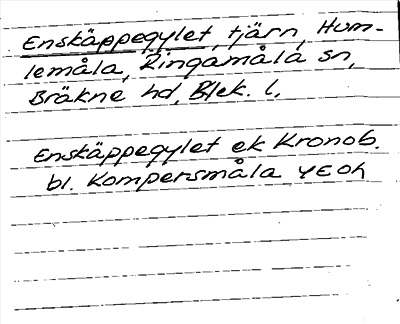 Enskäppegylet, tjärn, Hum-
lemåla, Ringamåla sn,
Bräkne hd, Blek. l.
Enskäppegylet ek Kronob.
bl. Kompersmåla YEoh